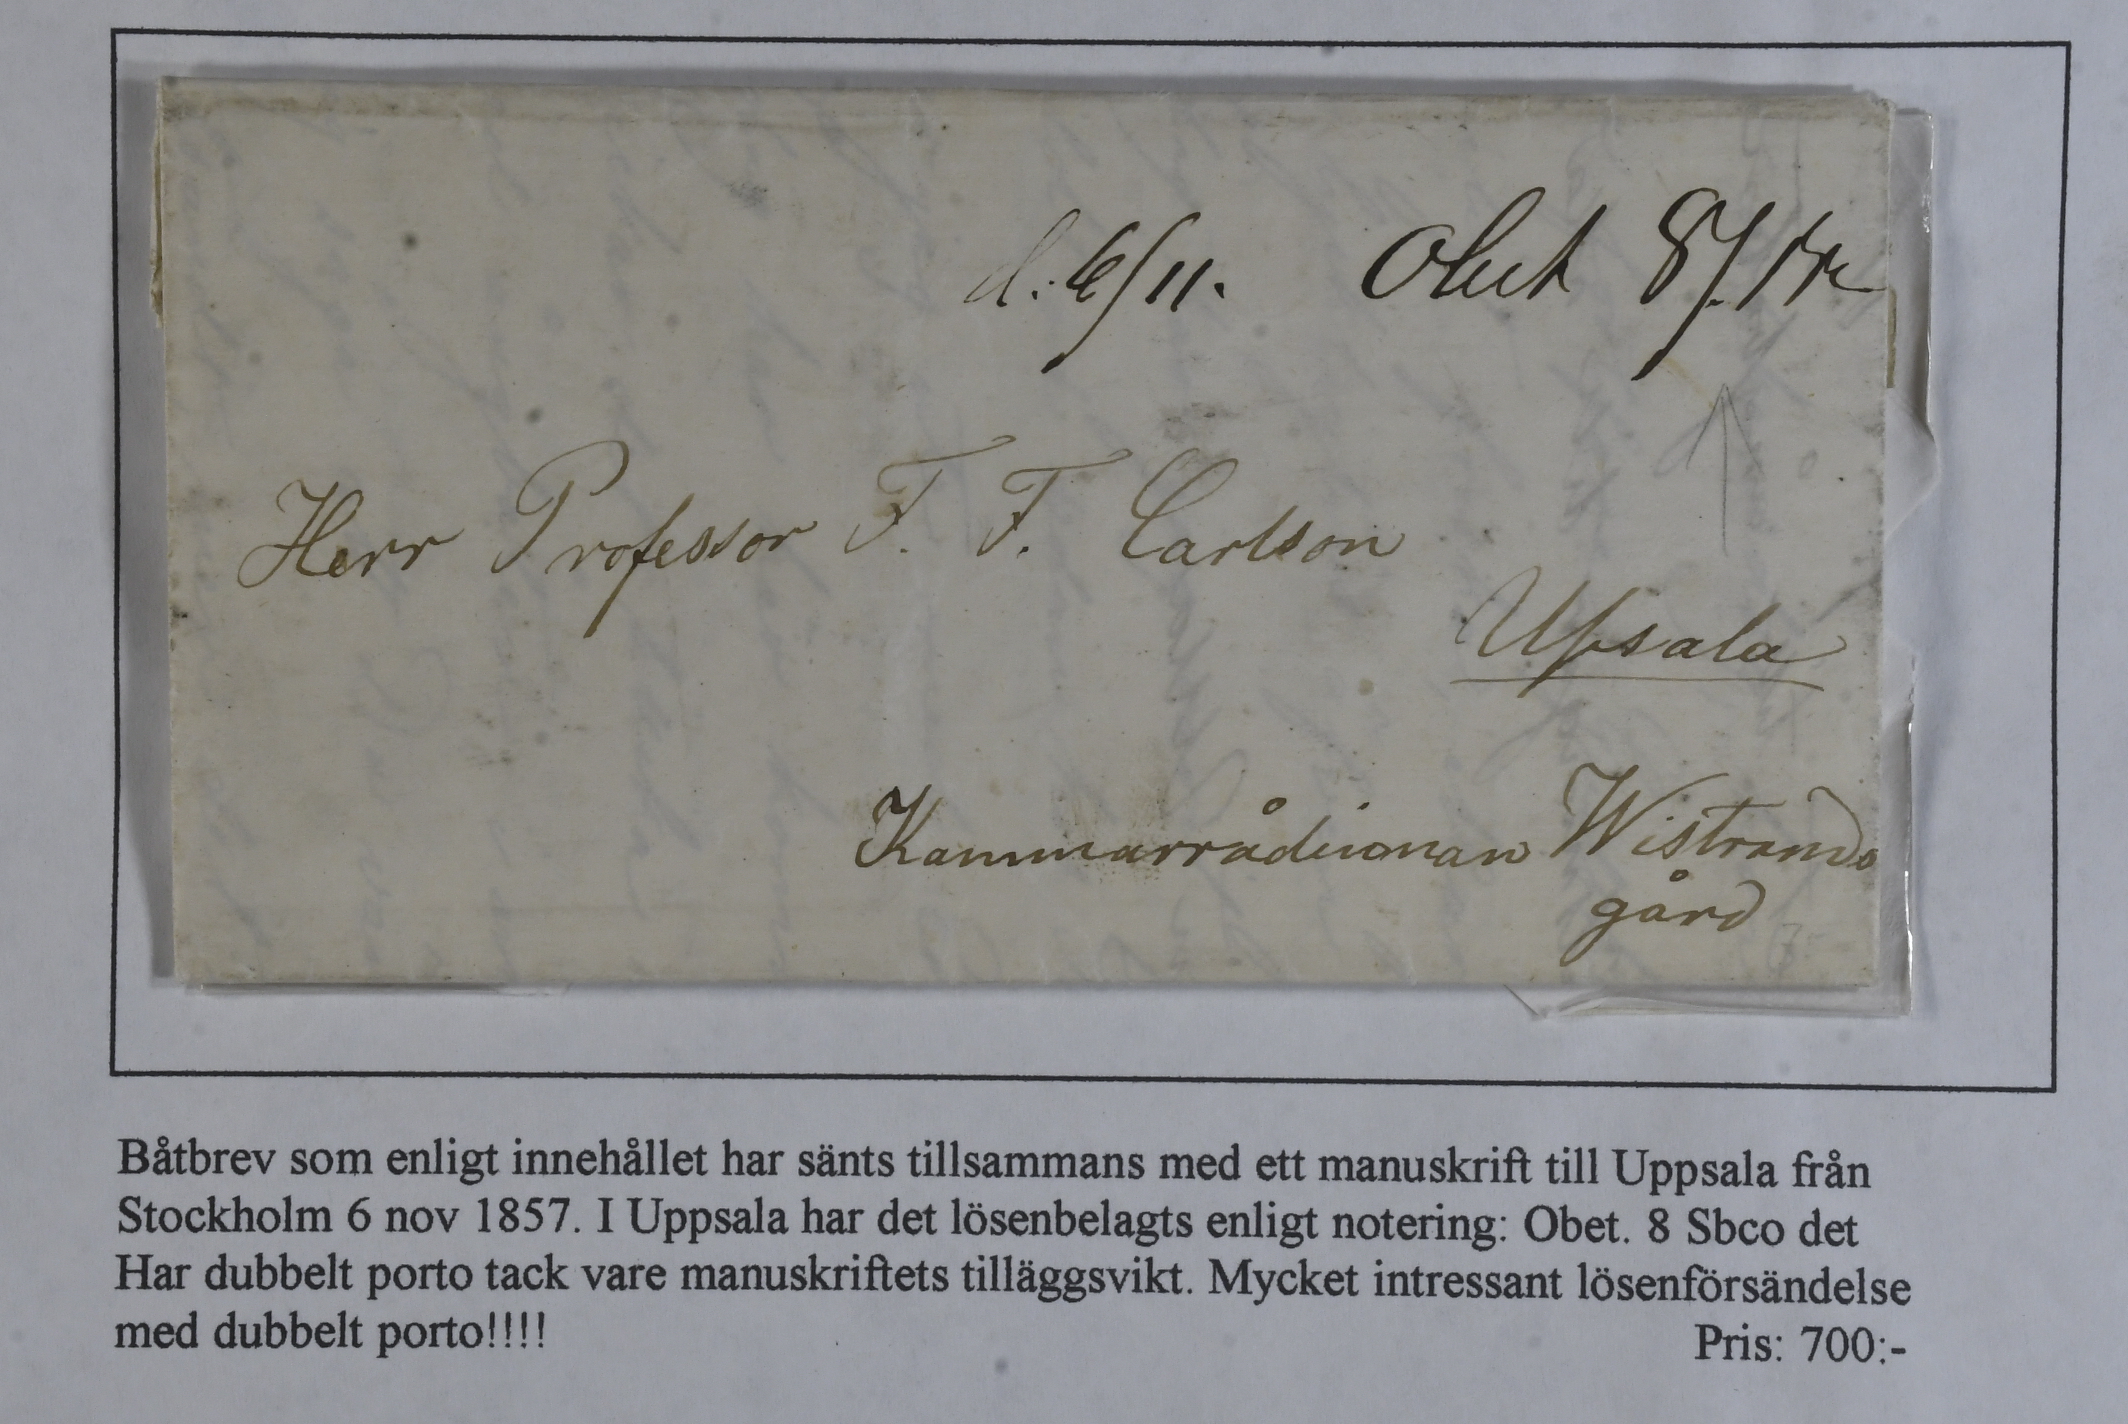 d. 6/11. Obet 8/.
Herr Professor F. F. Carlson
Upsala
Kammarrådinnan Wistrands
gård
Båtbrev som enligt innehållet har sänts tillsammans med ett manuskrift till Uppsala från
Stockholm 6 nov 1857. I Uppsala har det lösenbelagts enligt notering: Obet. 8 Sbco det
Har dubbelt porto tack vare manuskriftets tilläggsvikt. Mycket intressant lösenförsändelse
med dubbelt porto!!!!
Pris: 700:-